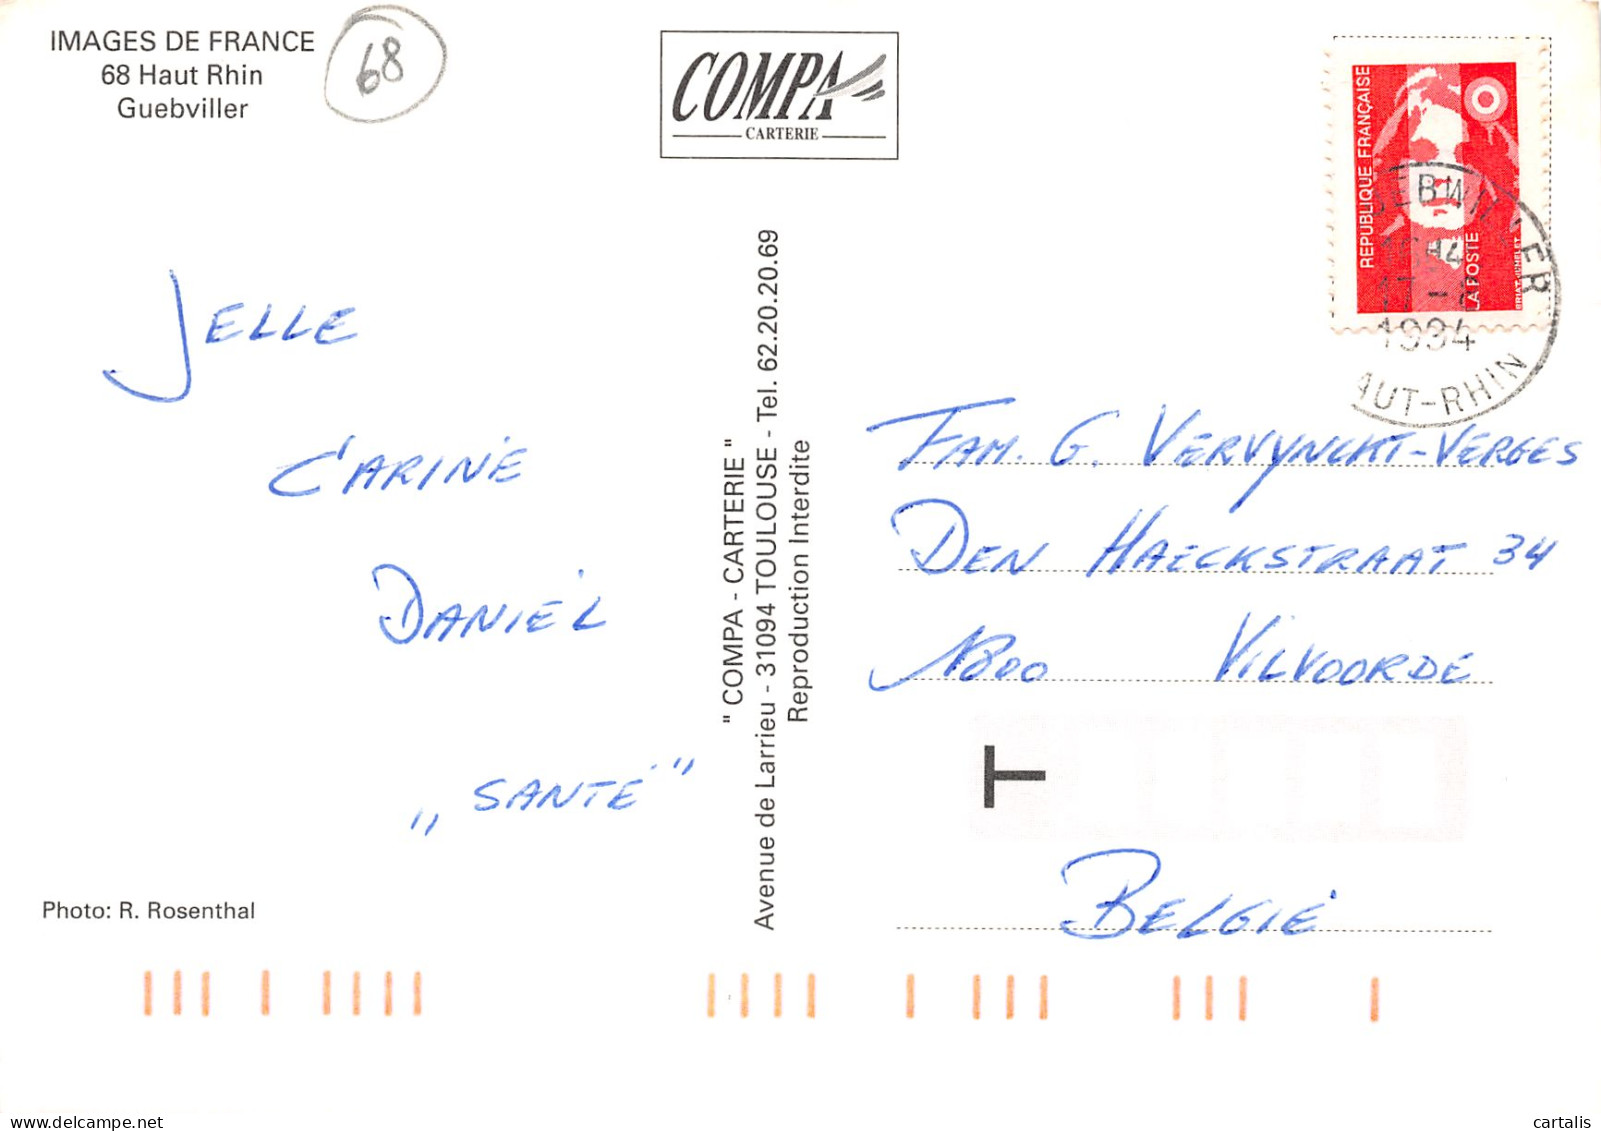 IMAGES DE FRANCE
68 Haut Rhin
Guebviller
68
COMPA
CARTERIE
REPUBLIQUE FRANÇAISE
LA POSTE
1994
AUT-RHIN
JELLE
CARINE
DANIËL
„SANTÉ"
Photo: R. Rosenthal
" COMPA - CARTERIE "
Avenue de Larrieu - 31094 TOULOUSE - Tel. 62.20.20.69
Reproduction Interdite
FAM. G. VERVYNCKT-VERGES
DEN HAECKSTRAAT 34
1800 VILVOORDE
T
BELGIË
cartalis
delcampe.net